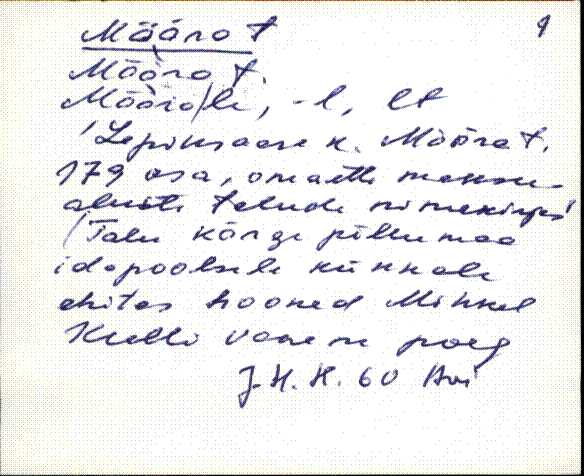 Määra t 9
Määra t.
Määra/le, -l, lt
'Lepiksaare k. Määra t.
179 osa, omaette maksu-
aluste talude nimekirjas'
(Talu kõrge põllumaa
idapoolsele künkale
ehitas hooned Mihkel
Kulli vanem poeg
J.H.H. 60 Avi